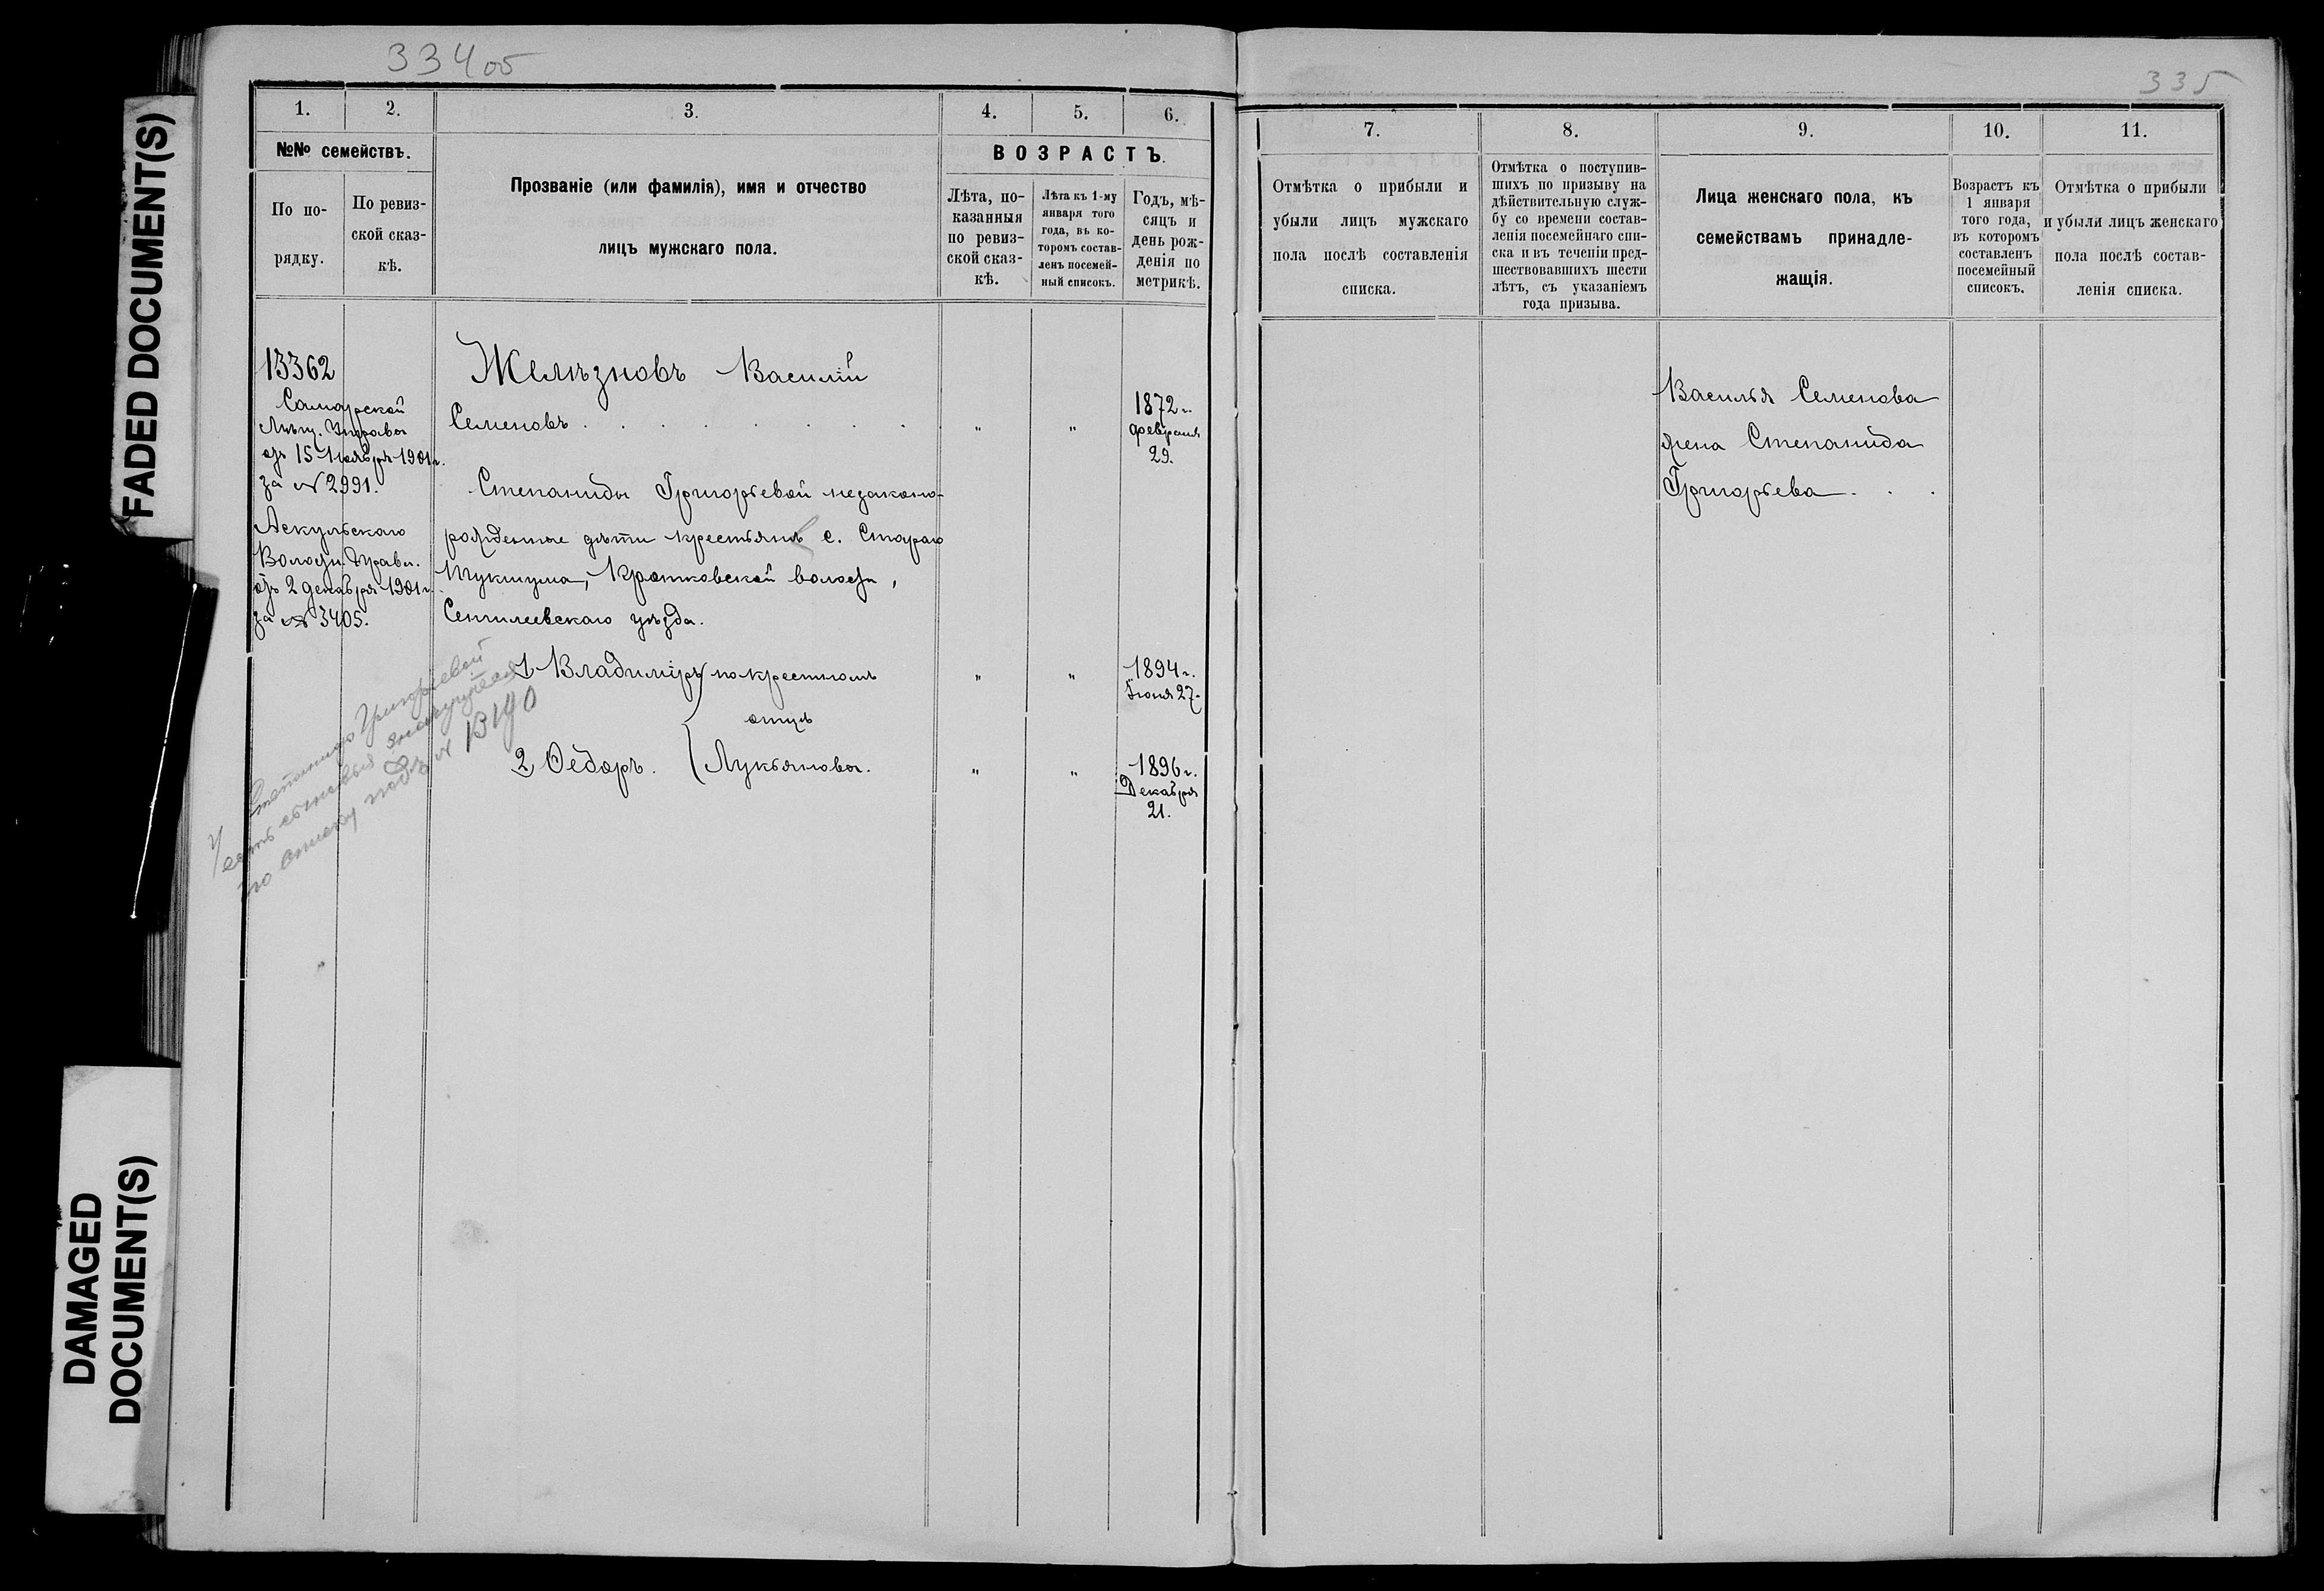 334 об
335
FADED DOCUMENT(S)
DAMAGED
DOCUMENT(S)
1.
2.
3.
4.
5.
6.
№№ семействъ.
По по-
рядку.
По ревиз-
ской сказ-
кѣ.
Прозваніе (или фамилія), имя и отчество
лицъ мужскаго пола.
ВОЗРАСТЪ.
Лѣта, по-
казанныя
по ревиз-
ской сказ-
кѣ.
Лѣта къ 1-му
января того
года, въ ко-
торомъ состав-
ленъ посемей-
ный списокъ.
Годъ, мѣ-
сяцъ и
день рож-
денія по
метрикѣ.
13362
Самарской
Мѣщ. Управы
отъ 15 Ноября 1901 г.
за № 2991.
Аскульскаго
Волостн. Правл.
отъ 2 декабря 1901 г.
за № 3405.
Желѣзновъ Василій
Семеновъ . . . . . . . " " 1872 г.
февраля
29.
Степаниды Григорьевой незаконо-
рожденные дѣти крестьянъ с. Стараго
Тукшума, Кротковской волости,
Сенгилеевскаго уѣзда.
1 Владиміръ по крестномъ " " 1894 г.
Іюля 27.
отцѣ
2 Ѳедоръ. Лукьяновы. " " 1896 г.
Декабря
21.
У Степаниды Григорьевой
есть сыновья значущіеся
по списку подъ № 13190
7.
8.
9.
10.
11.
Отмѣтка о прибыли и
убыли лицъ мужскаго
пола послѣ составленія
списка.
Отмѣтка о поступив-
шихъ по призыву на
дѣйствительную служ-
бу со времени состав-
ленія посемейнаго спи-
ска и въ теченіи пред-
шествовавшихъ шести
лѣтъ, съ указаніемъ
года призыва.
Лица женскаго пола, къ
семействамъ принадле-
жащія.
Возрастъ къ
1 января
того года,
въ которомъ
составленъ
посемейный
списокъ.
Отмѣтка о прибыли
и убыли лицъ женскаго
пола послѣ состав-
ленія списка.
Василья Семенова
жена Степанида
Григорьева . . .